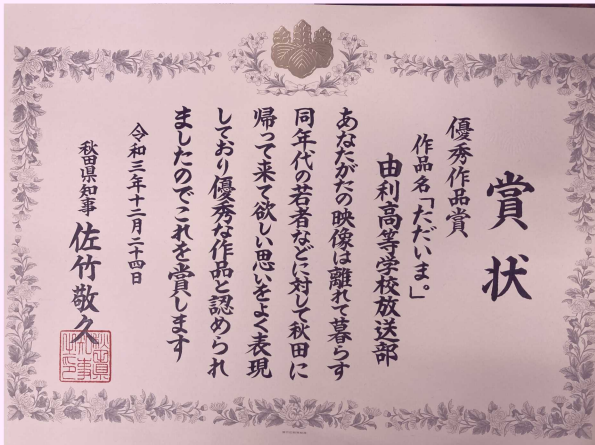 賞状
優秀作品賞
作品名「ただいま。」
由利高等学校放送部
あなたがたの映像は離れて暮らす
同年代の若者などに対して秋田に
帰って来て欲しい思いをよく表現
しており優秀な作品と認められ
ましたのでこれを賞します
令和三年十二月二十四日
秋田県知事 佐竹敬久